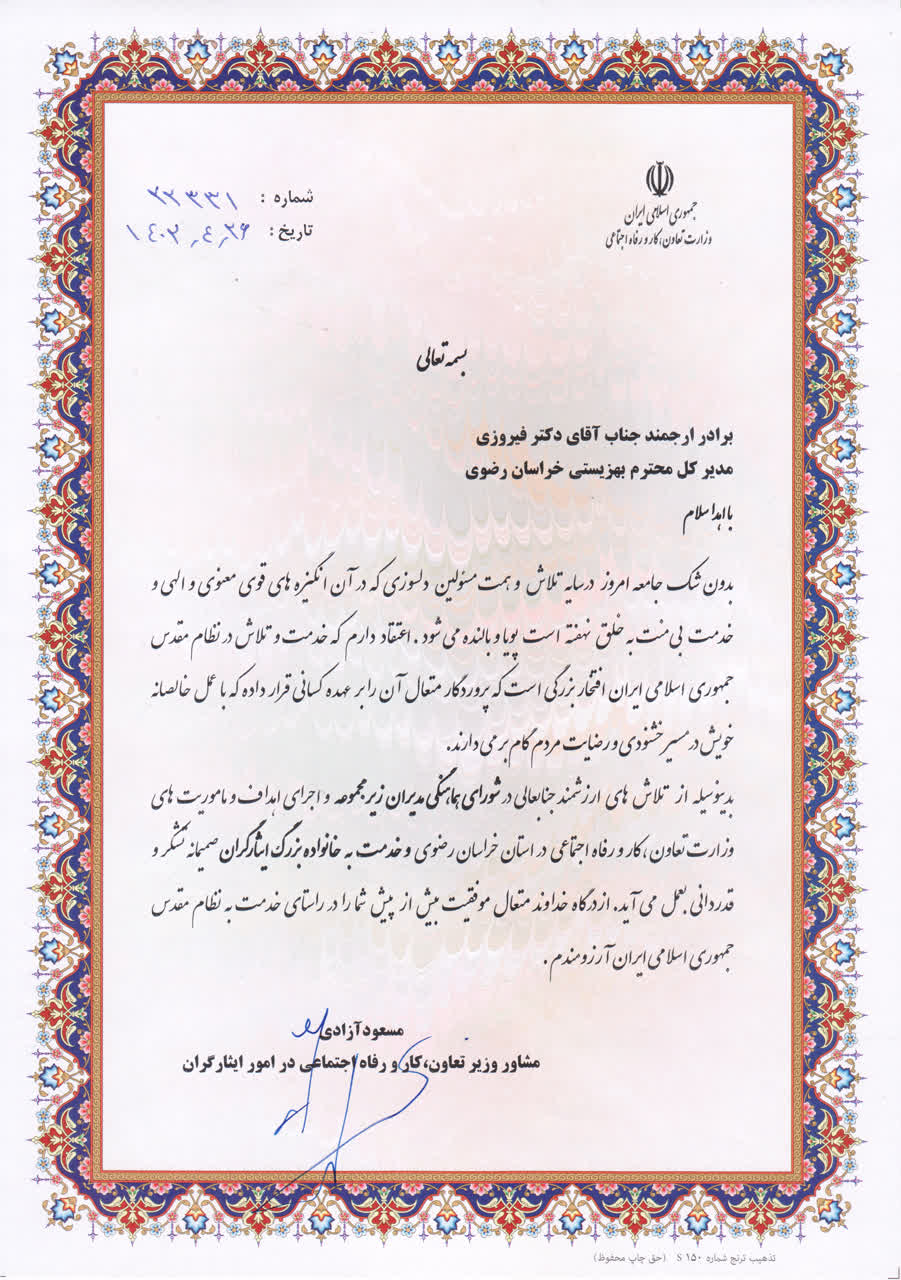 جمهوری اسلامی ایران
وزارت تعاون، کار و رفاه اجتماعی
شماره : ۲۲۳۳۱
تاریخ : ۱۴۰۲٫۴٫۲۶
بسمه تعالی
برادر ارجمند جناب آقای دکتر فیروزی
مدیر کل محترم بهزیستی خراسان رضوی
با اهدا سلام
بدون شک جامعه امروز در سایه تلاش و همت مسئولین دلسوزی که در آن انگیزه های قوی معنوی و الهی و
خدمت بی منت به خلق نهفته است پویا و بالنده می شود . اعتقاد دارم که خدمت و تلاش در نظام مقدس
جمهوری اسلامی ایران افتخار بزرگی است که پروردگار متعال آن را بر عهده کسانی قرار داده که با عمل خالصانه
خویش در مسیر خشنودی و رضایت مردم گام بر می دارند.
بدینوسیله از تلاش های ارزشمند جنابعالی در شورای هماهنگی مدیران زیر مجموعه و اجرای اهداف و ماموریت های
وزارت تعاون ، کار و رفاه اجتماعی در استان خراسان رضوی و خدمت به خانواده بزرگ ایثارگران صمیمانه تشکر و
قدردانی بعمل می آید. از درگاه خداوند متعال موفقیت بیش از پیش شما را در راستای خدمت به نظام مقدس
جمهوری اسلامی ایران آرزومندم .
مسعود آزادی
مشاور وزیر تعاون،کار و رفاه اجتماعی در امور ایثارگران
تذهیب ترنج شماره S ۱۵۰ (حق چاپ محفوظ)